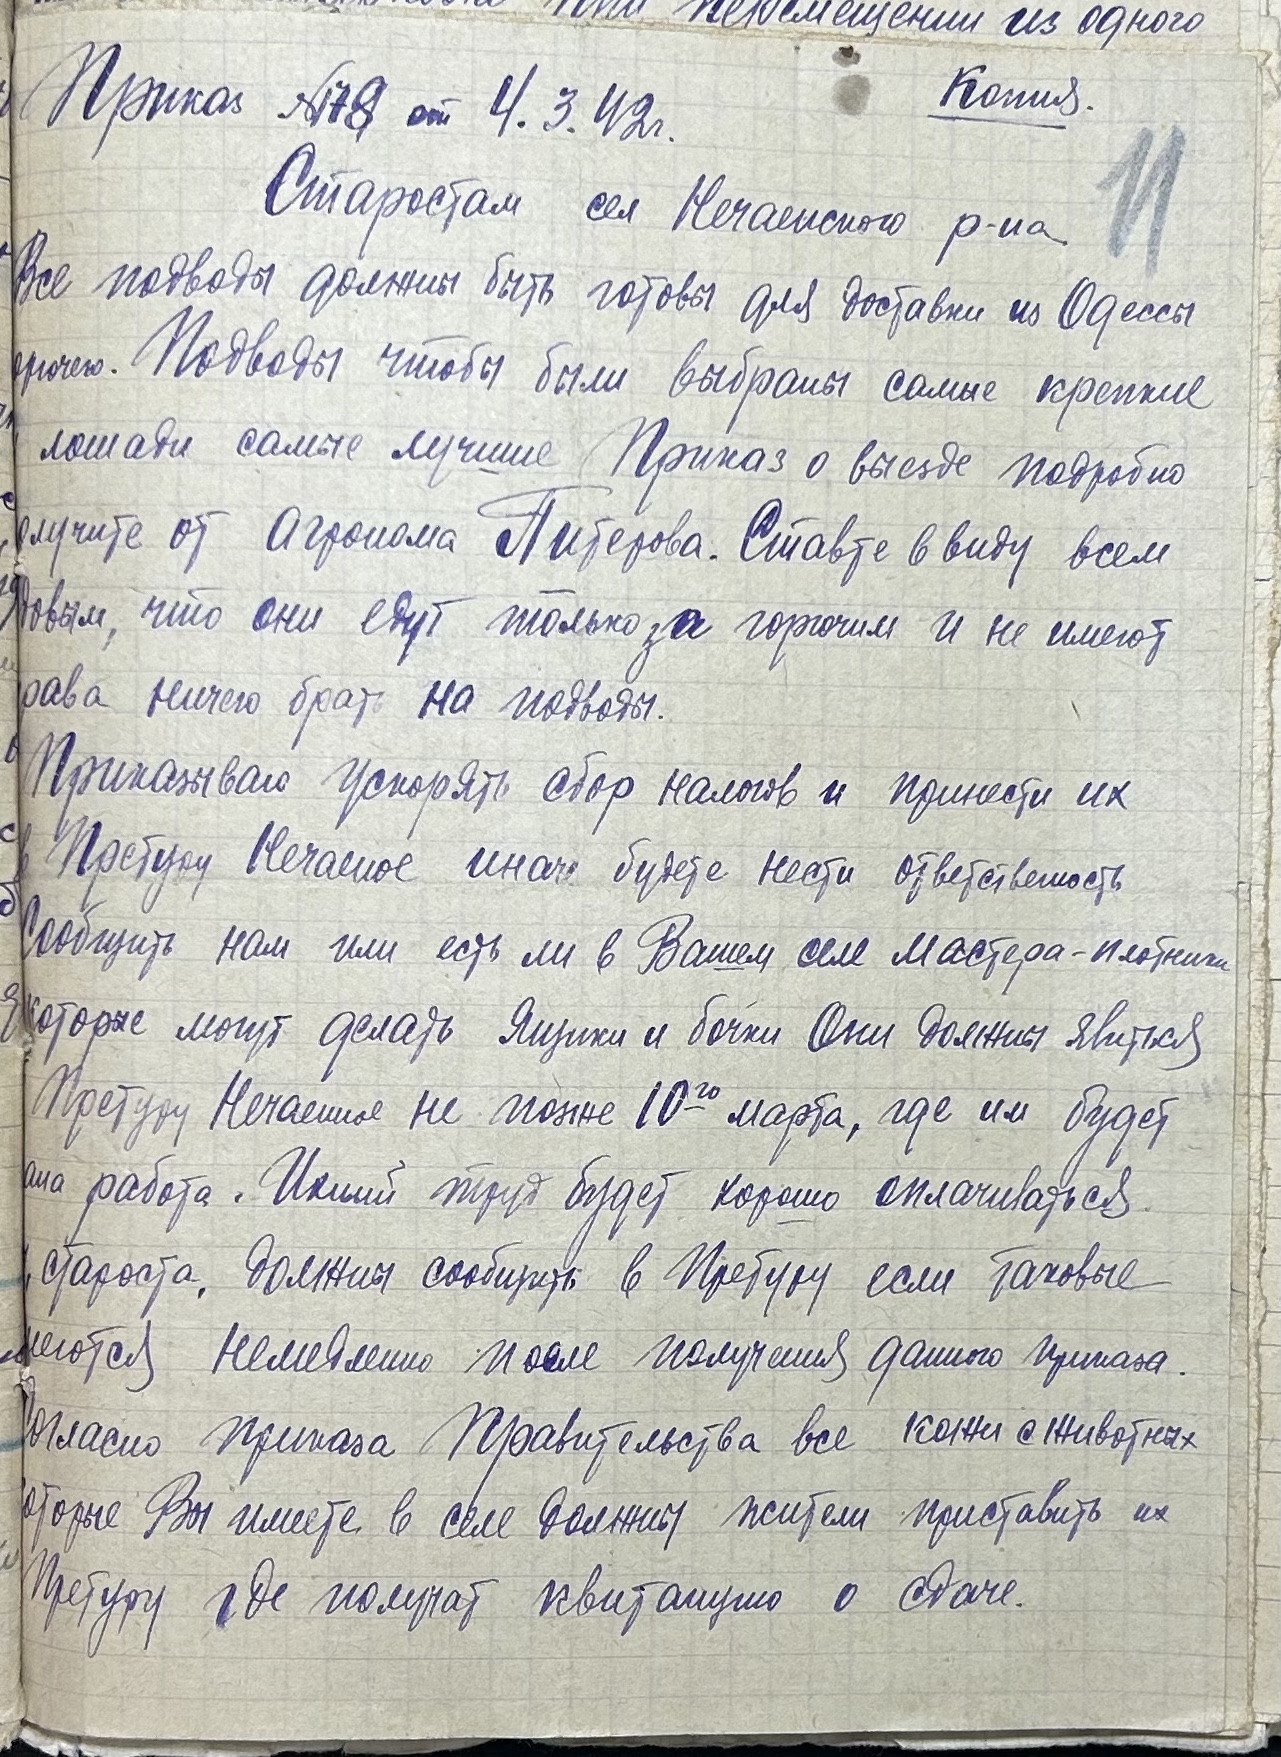 при перемещении из одного
Приказ №78 от 4.3.42г.
Копия.
11
Старостам сел Нечаенского р-на
Все подводы должны быть готовы для доставки из Одессы
орючего. Подводы чтобы были выбраны самые крепкие
лошади самые лучшие Приказ о выезде подробно
олучите от агронома Питерова. Ставте в виду всем
довым, что они едут только за горючим и не имеют
рава ничего брать на подводы.
Приказываю ускорять сбор налогов и принести их
в Претуру Нечаеное иначе будете нести ответственость
Сообщить нам или есть ли в Вашем селе мастера-плотники
которые могут делать ящики и бочки Они должны явиться
Претуру Нечаеное не позже 10го марта, где им будет
ана работа. Ихний труд будет хорошо оплачиваться.
, староста, должны сообщить в Претуру если таковые
меются немедленно после получения данного приказа.
Согласно приказа Правительства все кожи с животных
оторые Вы имеете в селе должны жители приставить их
Претуру где получат квитанцию о сдаче.